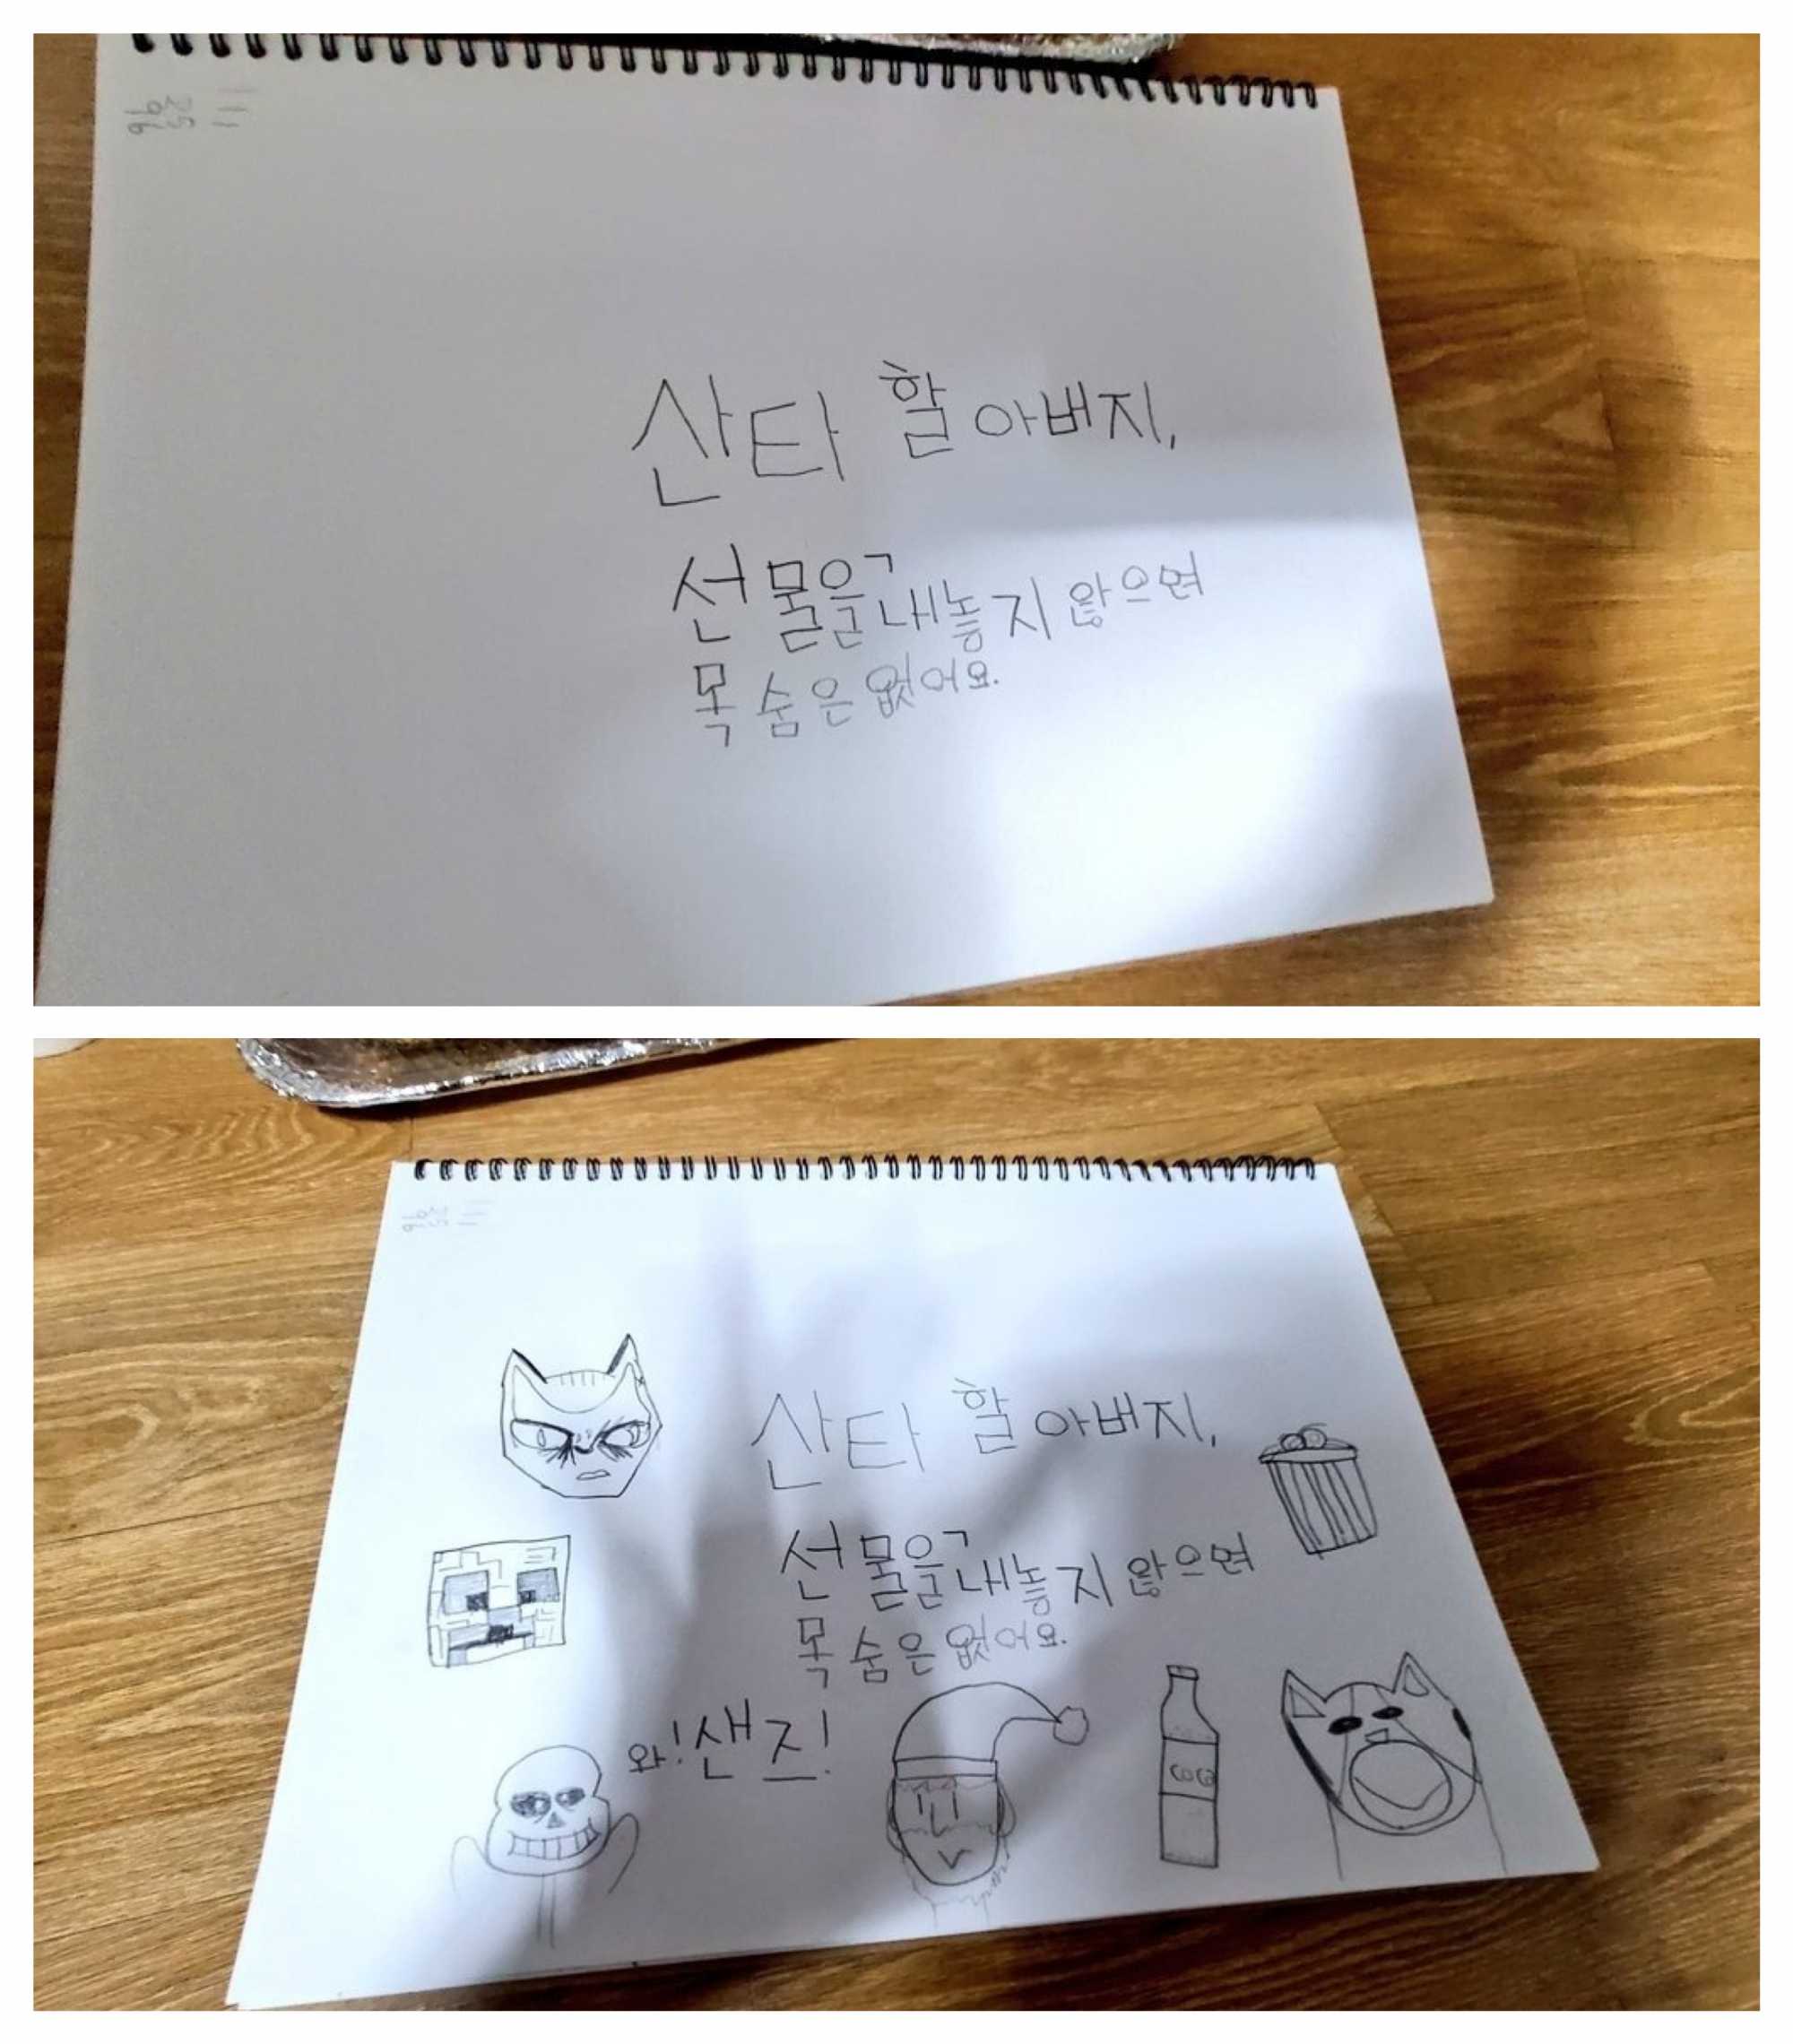 산타 할아버지,
선물을 내놓지 않으면
목숨은 없어요.
산타 할아버지,
선물을 내놓지 않으면
목숨은 없어요.
와! 샌즈!
COCA